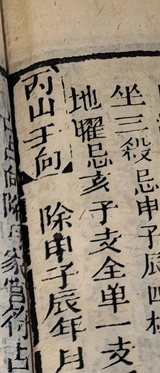 坐三殺忌申子辰四柱
地曜忌亥子支全单一支
丙山壬向
除申子辰年月